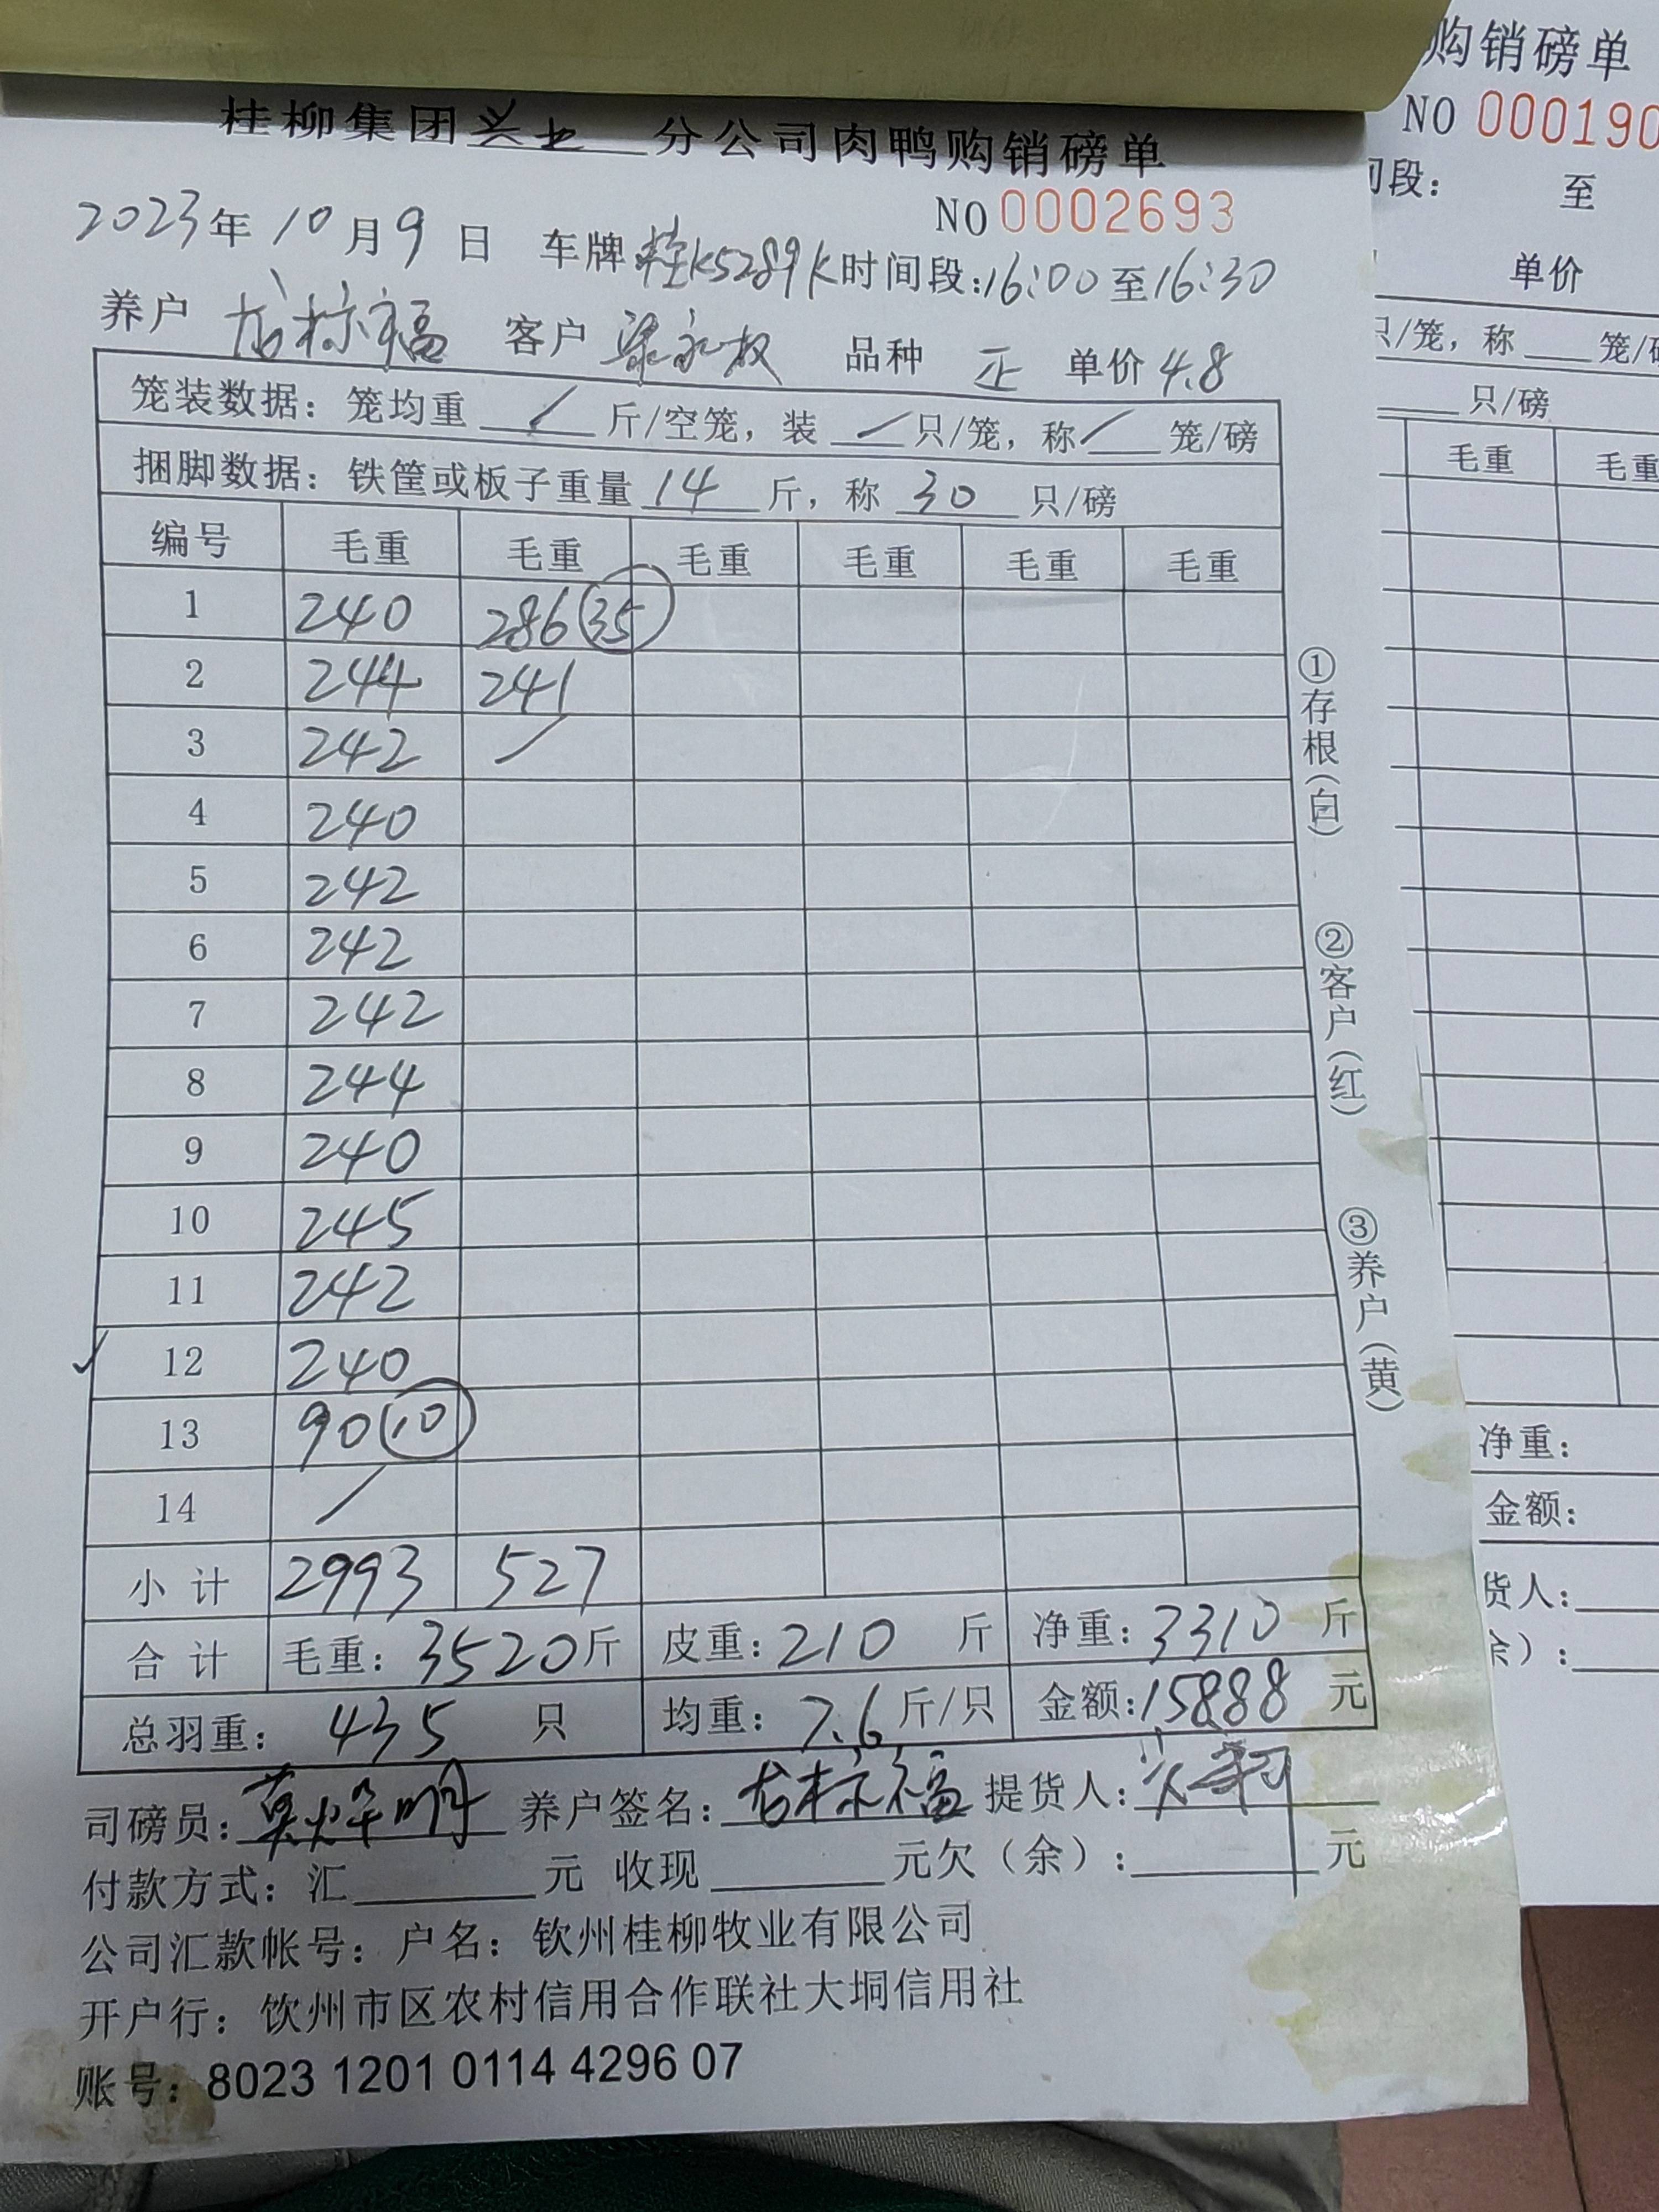 桂柳集团兴业分公司肉鸭购销磅单
NO 0002693
2023年10月9日 车牌桂K5289K时间段:16:00至16:30
养户 龙标福 客户 梁永权 品种 正 单价4.8
笼装数据: 笼均重 / 斤/空笼, 装 / 只/笼, 称 / 笼/磅
捆脚数据: 铁筐或板子重量 14 斤, 称 30 只/磅
编号 毛重 毛重 毛重 毛重 毛重 毛重
1 240 286 35
2 244 241
3 242 /
4 240
5 242
6 242
7 242
8 244
9 240
10 245
11 242
12 240
13 90 10
14 /
小计 2993 527
合计 毛重: 3520斤 皮重: 210 斤 净重: 3310 斤
总羽重: 435 只 均重: 7.6 斤/只 金额: 15888 元
司磅员: 养户签名: 龙标福 提货人:
付款方式: 汇 元 收现 元欠（余）: 元
公司汇款帐号: 户名: 钦州桂柳牧业有限公司
开户行: 钦州市区农村信用合作联社大垌信用社
账号: 8023 1201 0114 4296 07
①存根(白)
②客户(红)
③养户(黄)
购销磅单
NO 000190
间段: 至
单价
只/笼, 称 笼/磅
只/磅
毛重 毛重
净重:
金额:
货人:
余）: